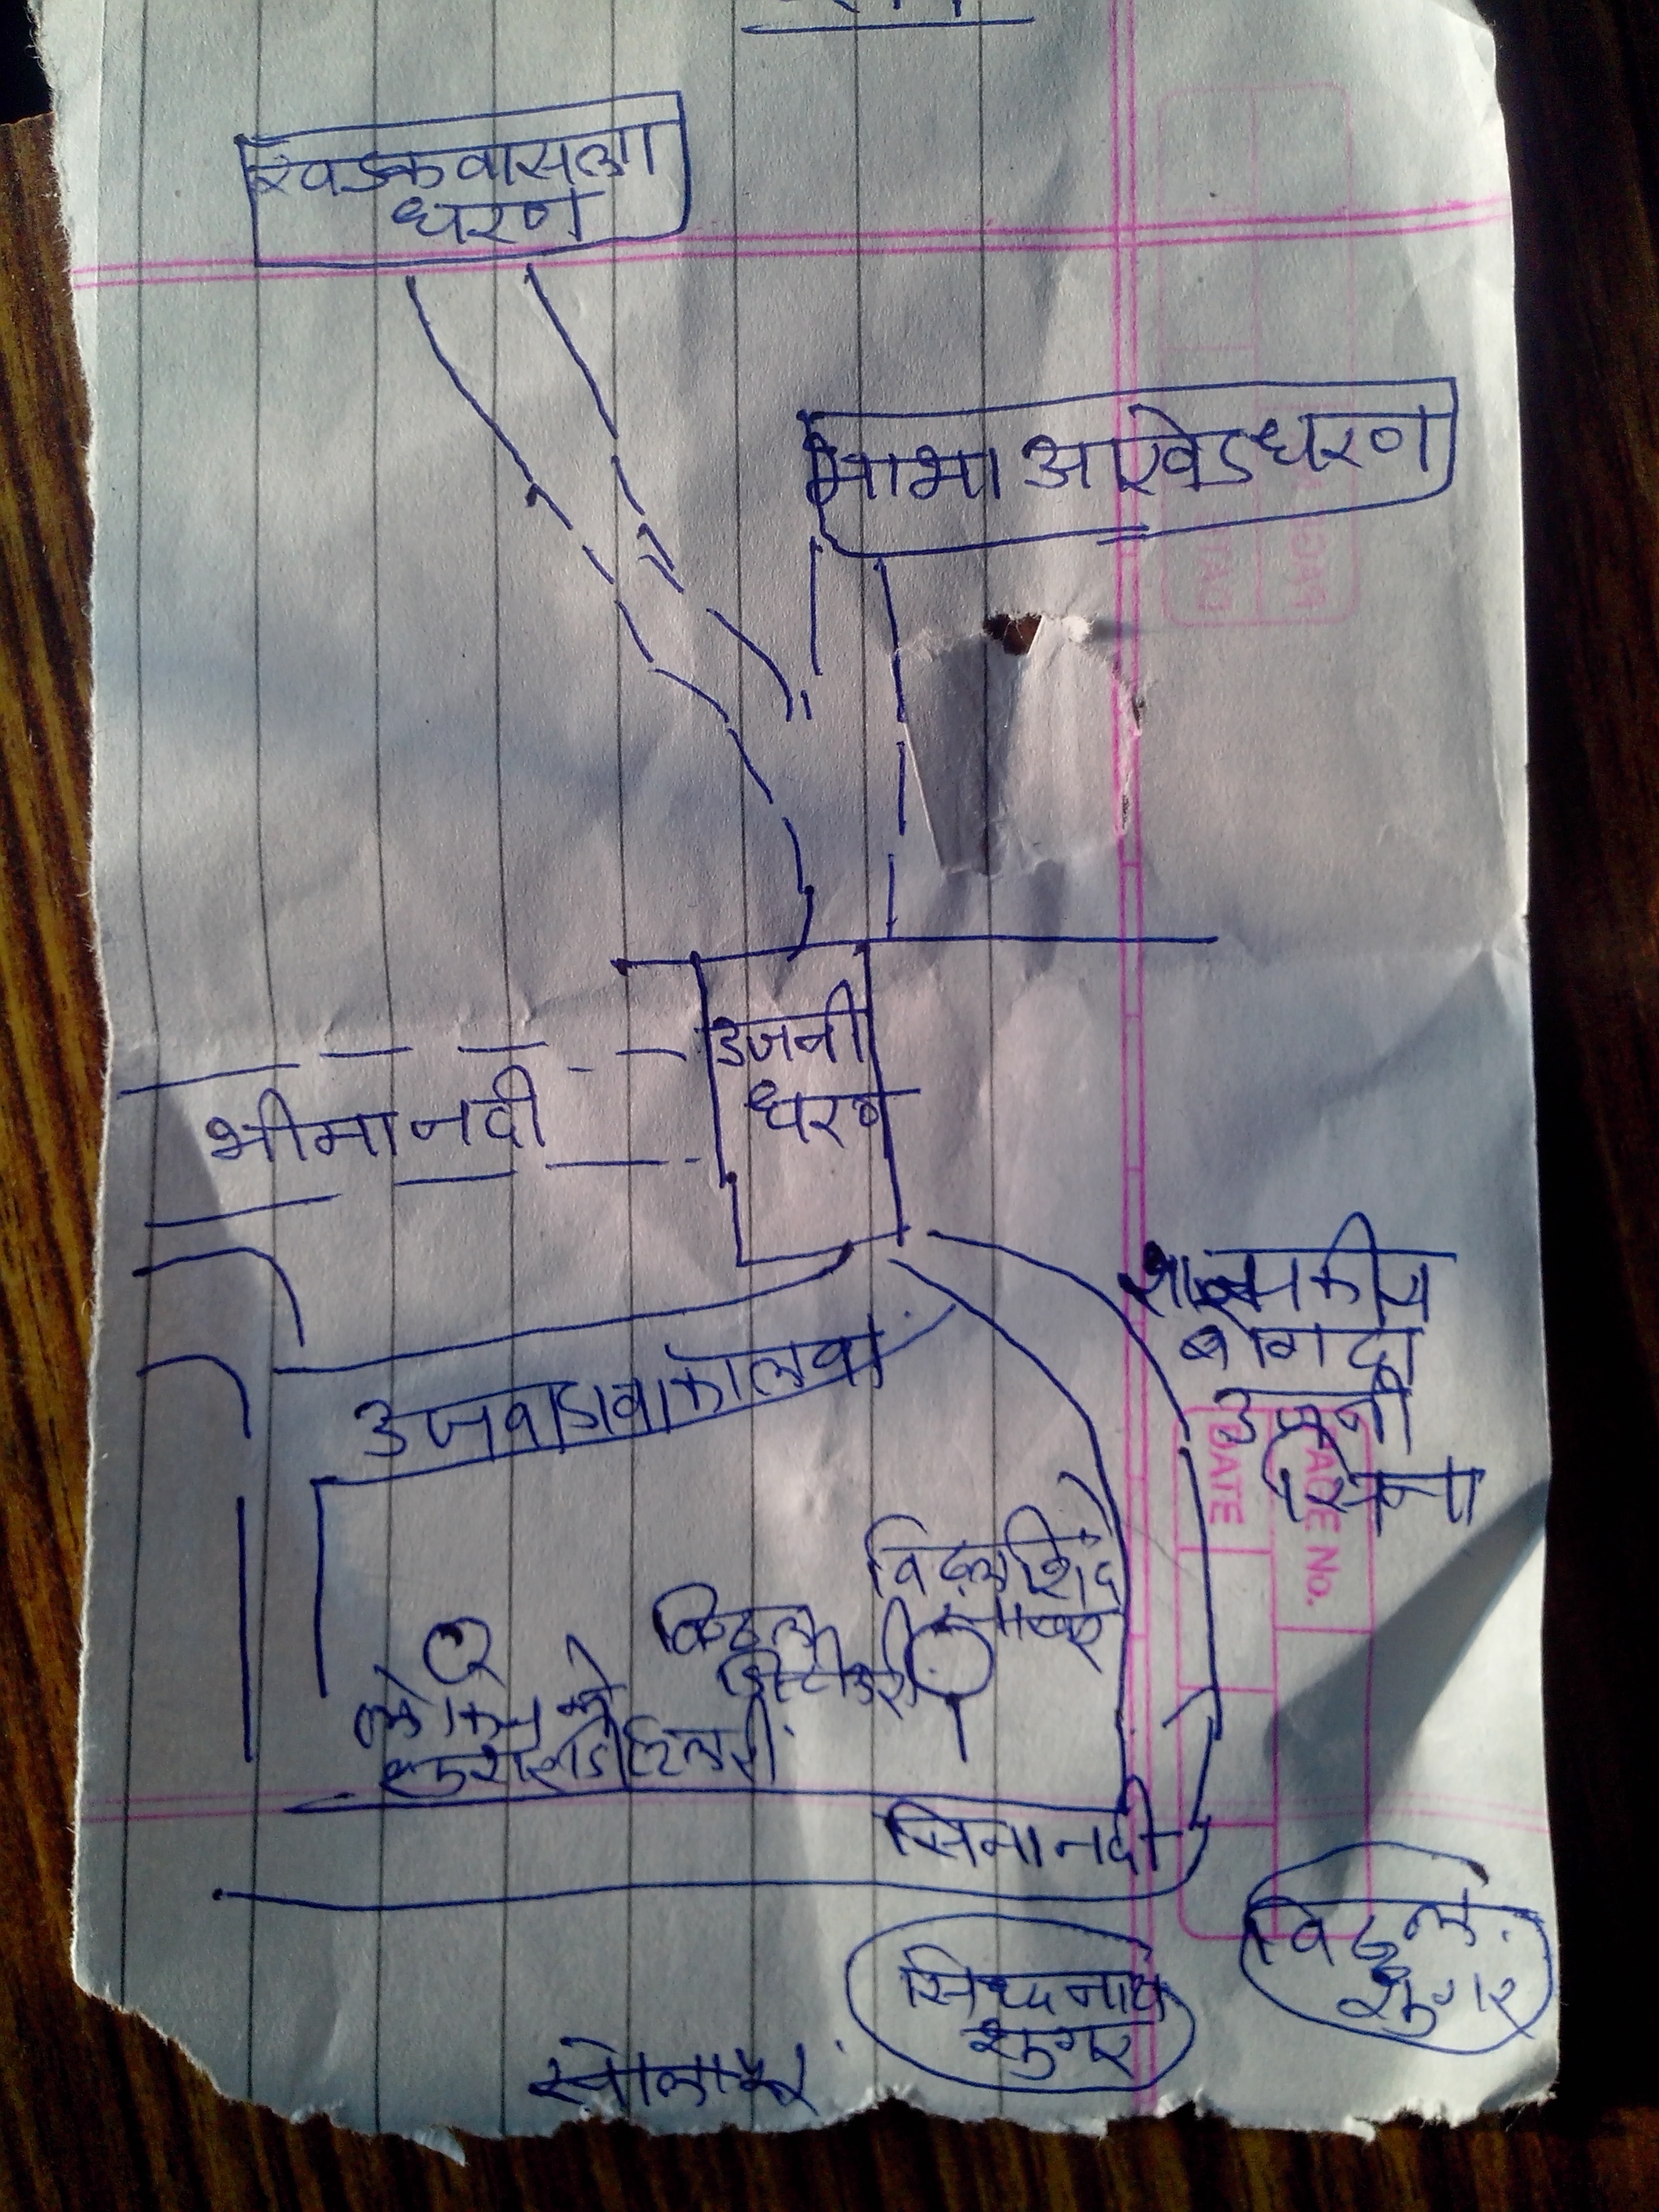 खडकवासला
धरण
भामा आखेड धरण
उजनी
धरण
भीमा नदी
शासकीय
बोगदा
उजनी
सिना
उजवा डावा कालवा
विठ्ठल शिंदे
साखर
विठ्ठल
डिस्टीलरी
लोकमंगल
सिना नदी
विठ्ठल
शुगर
सिध्दनाथ
शुगर
सोलापूर
PAGE No.
DATE